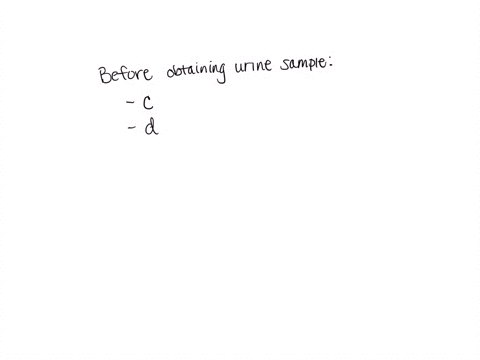 Before obtaining urine sample:
- c
- d